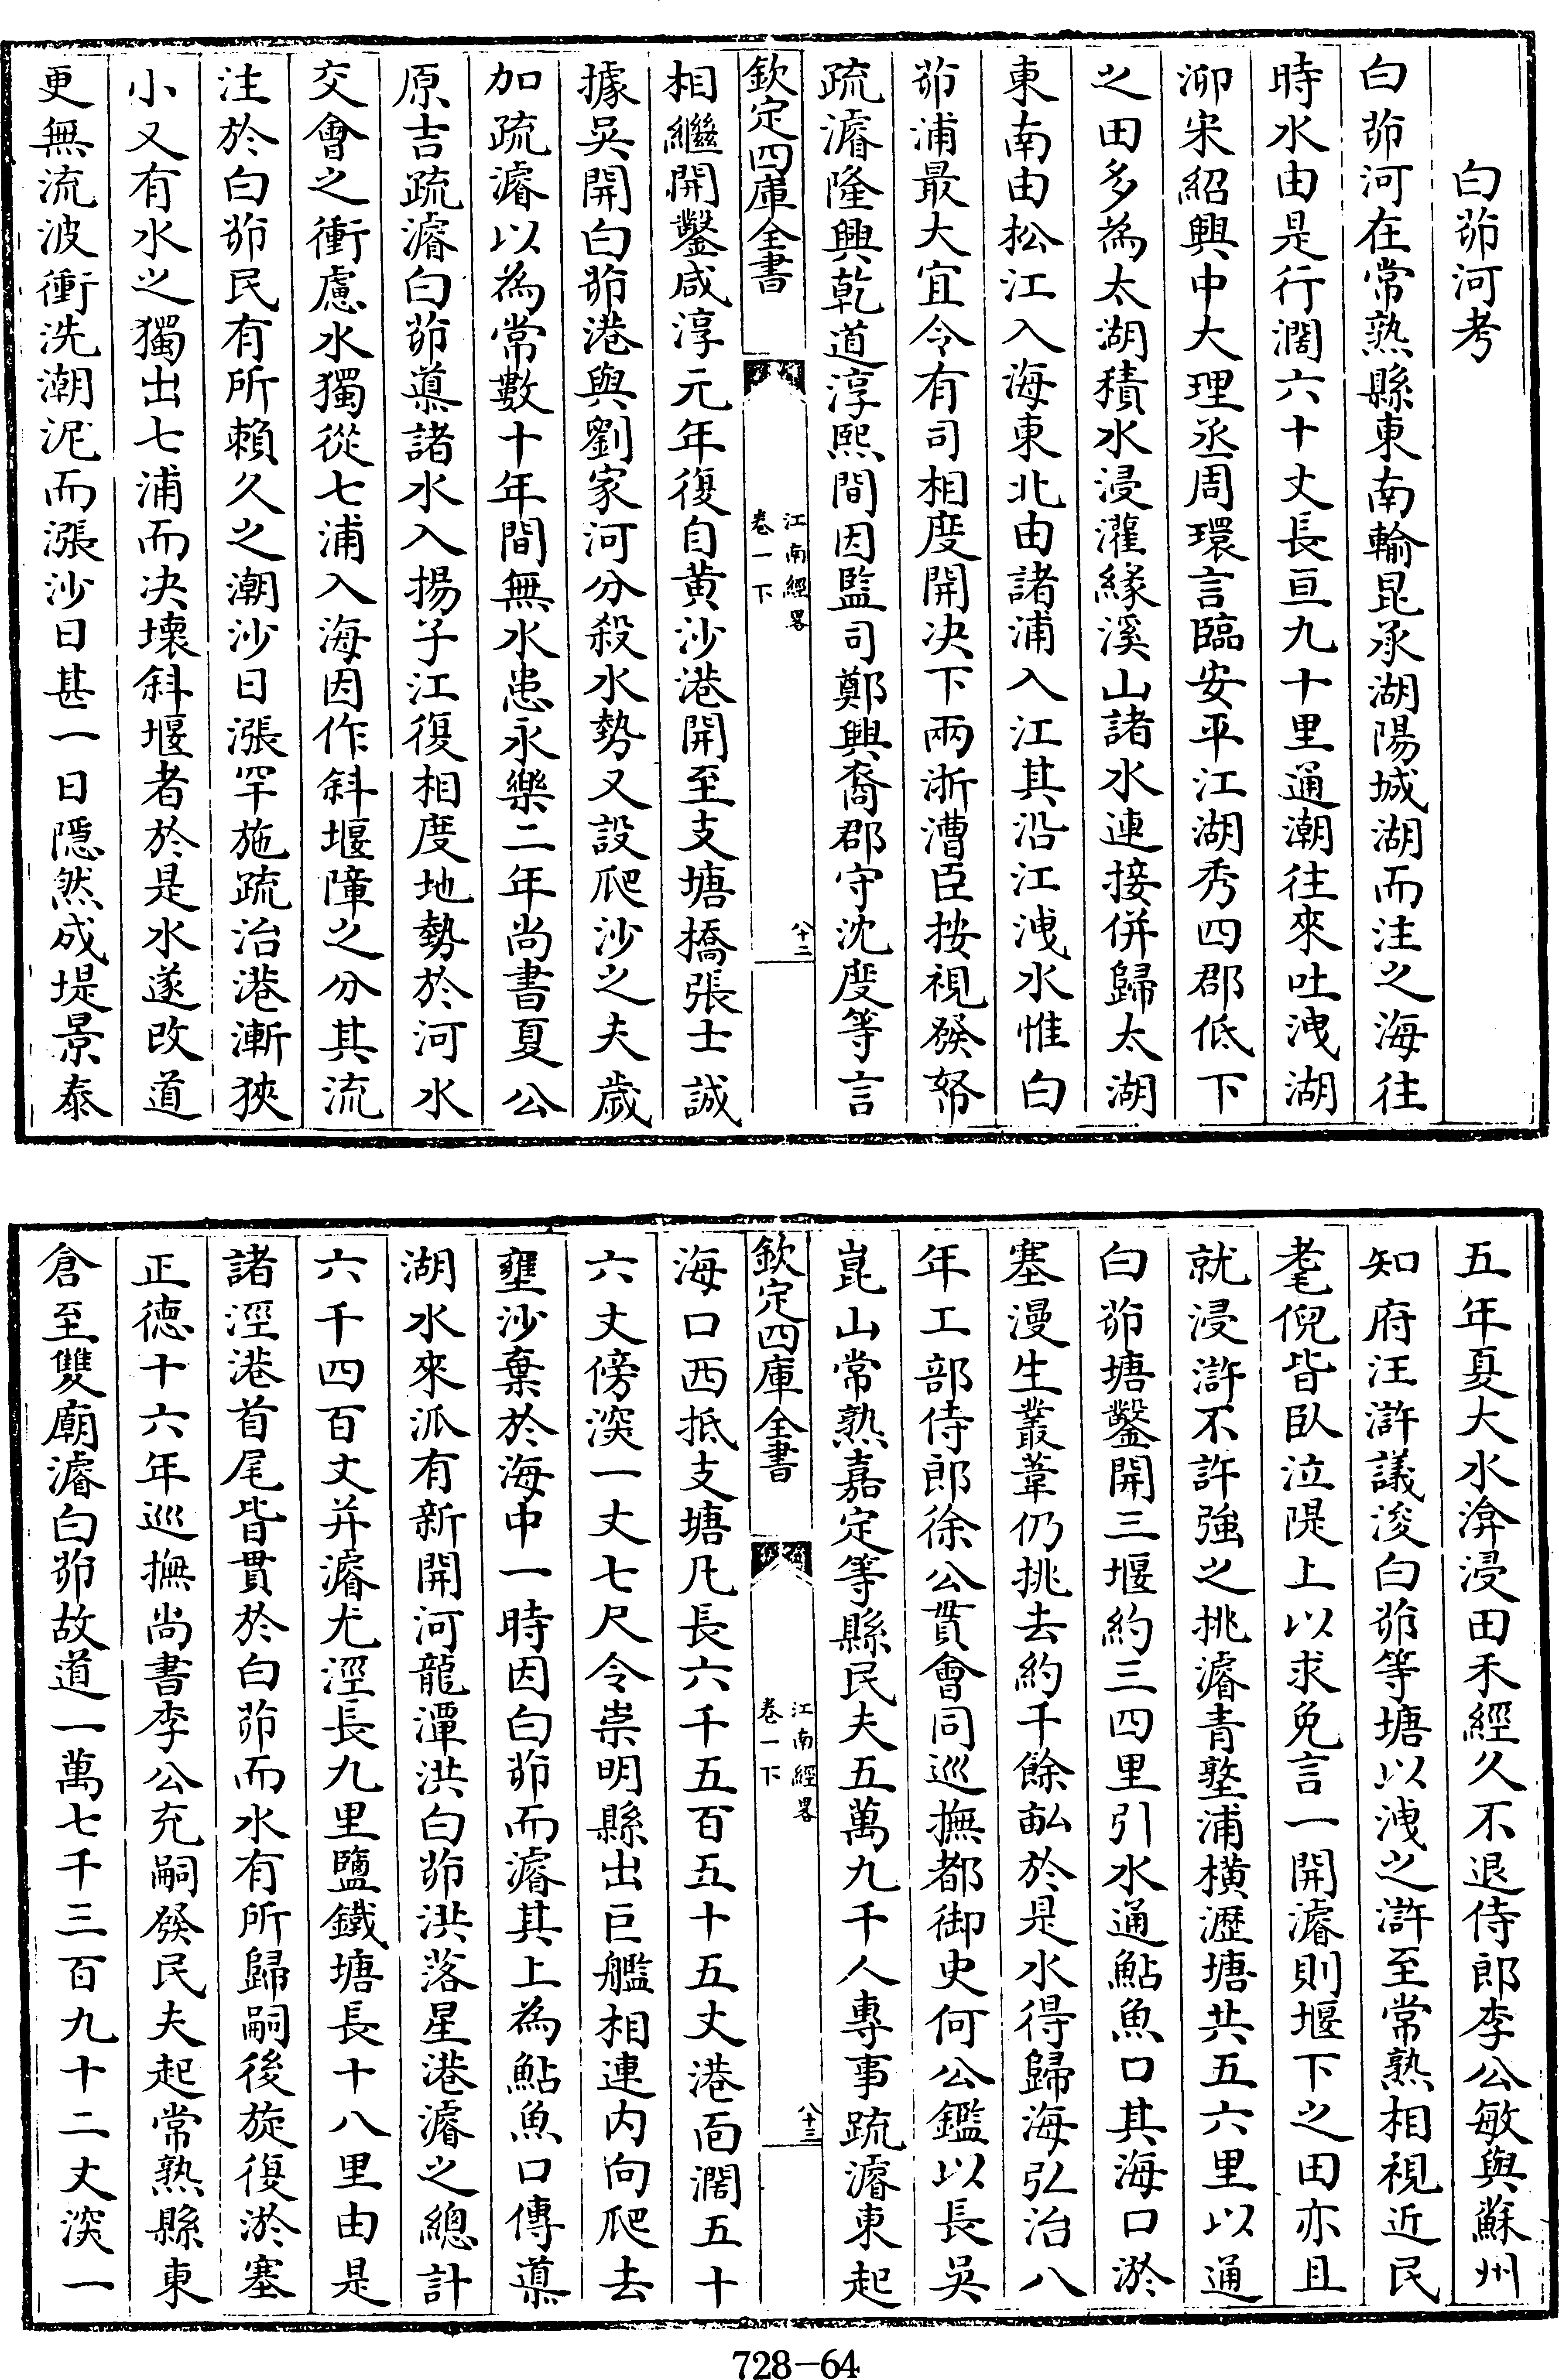 白茆河考
白茆河在常熟縣東南輸昆承湖陽城湖而注之海往
時水由是行濶六十丈長亘九十里通潮往來吐洩湖
泖宋紹興中大理丞周環言臨安平江湖秀四郡低下
之田多為太湖積水浸灌緣溪山諸水連接併歸太湖
東南由松江入海東北由諸浦入江其沿江洩水惟白
茆浦最大宜令有司相度開决下兩浙漕臣按視發帑
疏濬隆興乾道淳熙間因監司鄭興裔郡守沈度等言
欽定四庫全書
江南經畧
卷一下
八十二
相繼開鑿咸淳元年復自黄沙港開至支塘橋張士誠
據吳開白茆港與劉家河分殺水勢又設爬沙之夫歲
加疏濬以為常數十年間無水患永樂二年尚書夏公
原吉疏濬白茆導諸水入揚子江復相度地勢於河水
交會之衝慮水獨從七浦入海因作斜堰障之分其流
注於白茆民有所賴久之潮沙日漲罕施疏治港漸狹
小又有水之獨出七浦而决壊斜堰者於是水遂改道
更無流波衝洗潮泥而漲沙日甚一日隱然成堤景泰
五年夏大水渰浸田禾經久不退侍郎李公敏與蘇州
知府汪滸議浚白茆等塘以洩之滸至常熟相視近民
耄倪皆臥泣隄上以求免言一開濬則堰下之田亦且
就浸滸不許強之挑濬青墪浦横瀝塘共五六里以通
白茆塘鑿開三堰約三四里引水通鮎魚口其海口淤
塞漫生叢葦仍挑去約千餘畝於是水得歸海弘治八
年工部侍郎徐公貫會同巡撫都御史何公鑑以長吳
崑山常熟嘉定等縣民夫五萬九千人專事疏濬東起
欽定四庫全書
江南經畧
卷一下
八十三
海口西抵支塘凡長六千五百五十五丈港面濶五十
六丈傍深一丈七尺令崇明縣出巨艦相連内向爬去
壅沙棄於海中一時因白茆而濬其上為鮎魚口傳導
湖水來派有新開河龍潭洪白茆洪落星港濬之總計
六千四百丈并濬尤涇長九里鹽鐵塘長十八里由是
諸涇港首尾皆貫於白茆而水有所歸嗣後旋復淤塞
正德十六年巡撫尚書李公充嗣發民夫起常熟縣東
倉至雙廟濬白茆故道一萬七千三百九十二丈深一
728-64